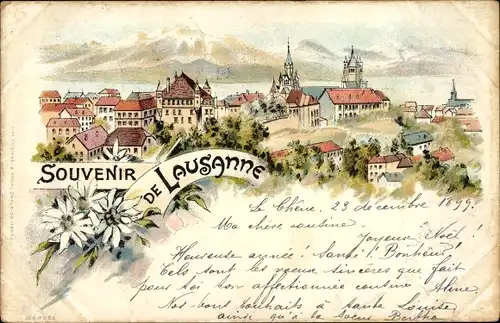 SOUVENIR
DE LAUSANNE
Le Chêne. 23 décembre 1899.
Ma chère cousine.
Joyeux Noël!
Heureuse année! Santé! Bonheur!
Tels sont les voeux sincères que fait
pour toi ton affectionnée cousine Aline
Nos bons souhaits à tante Louise
ainsi qu'à ta soeur Berthe